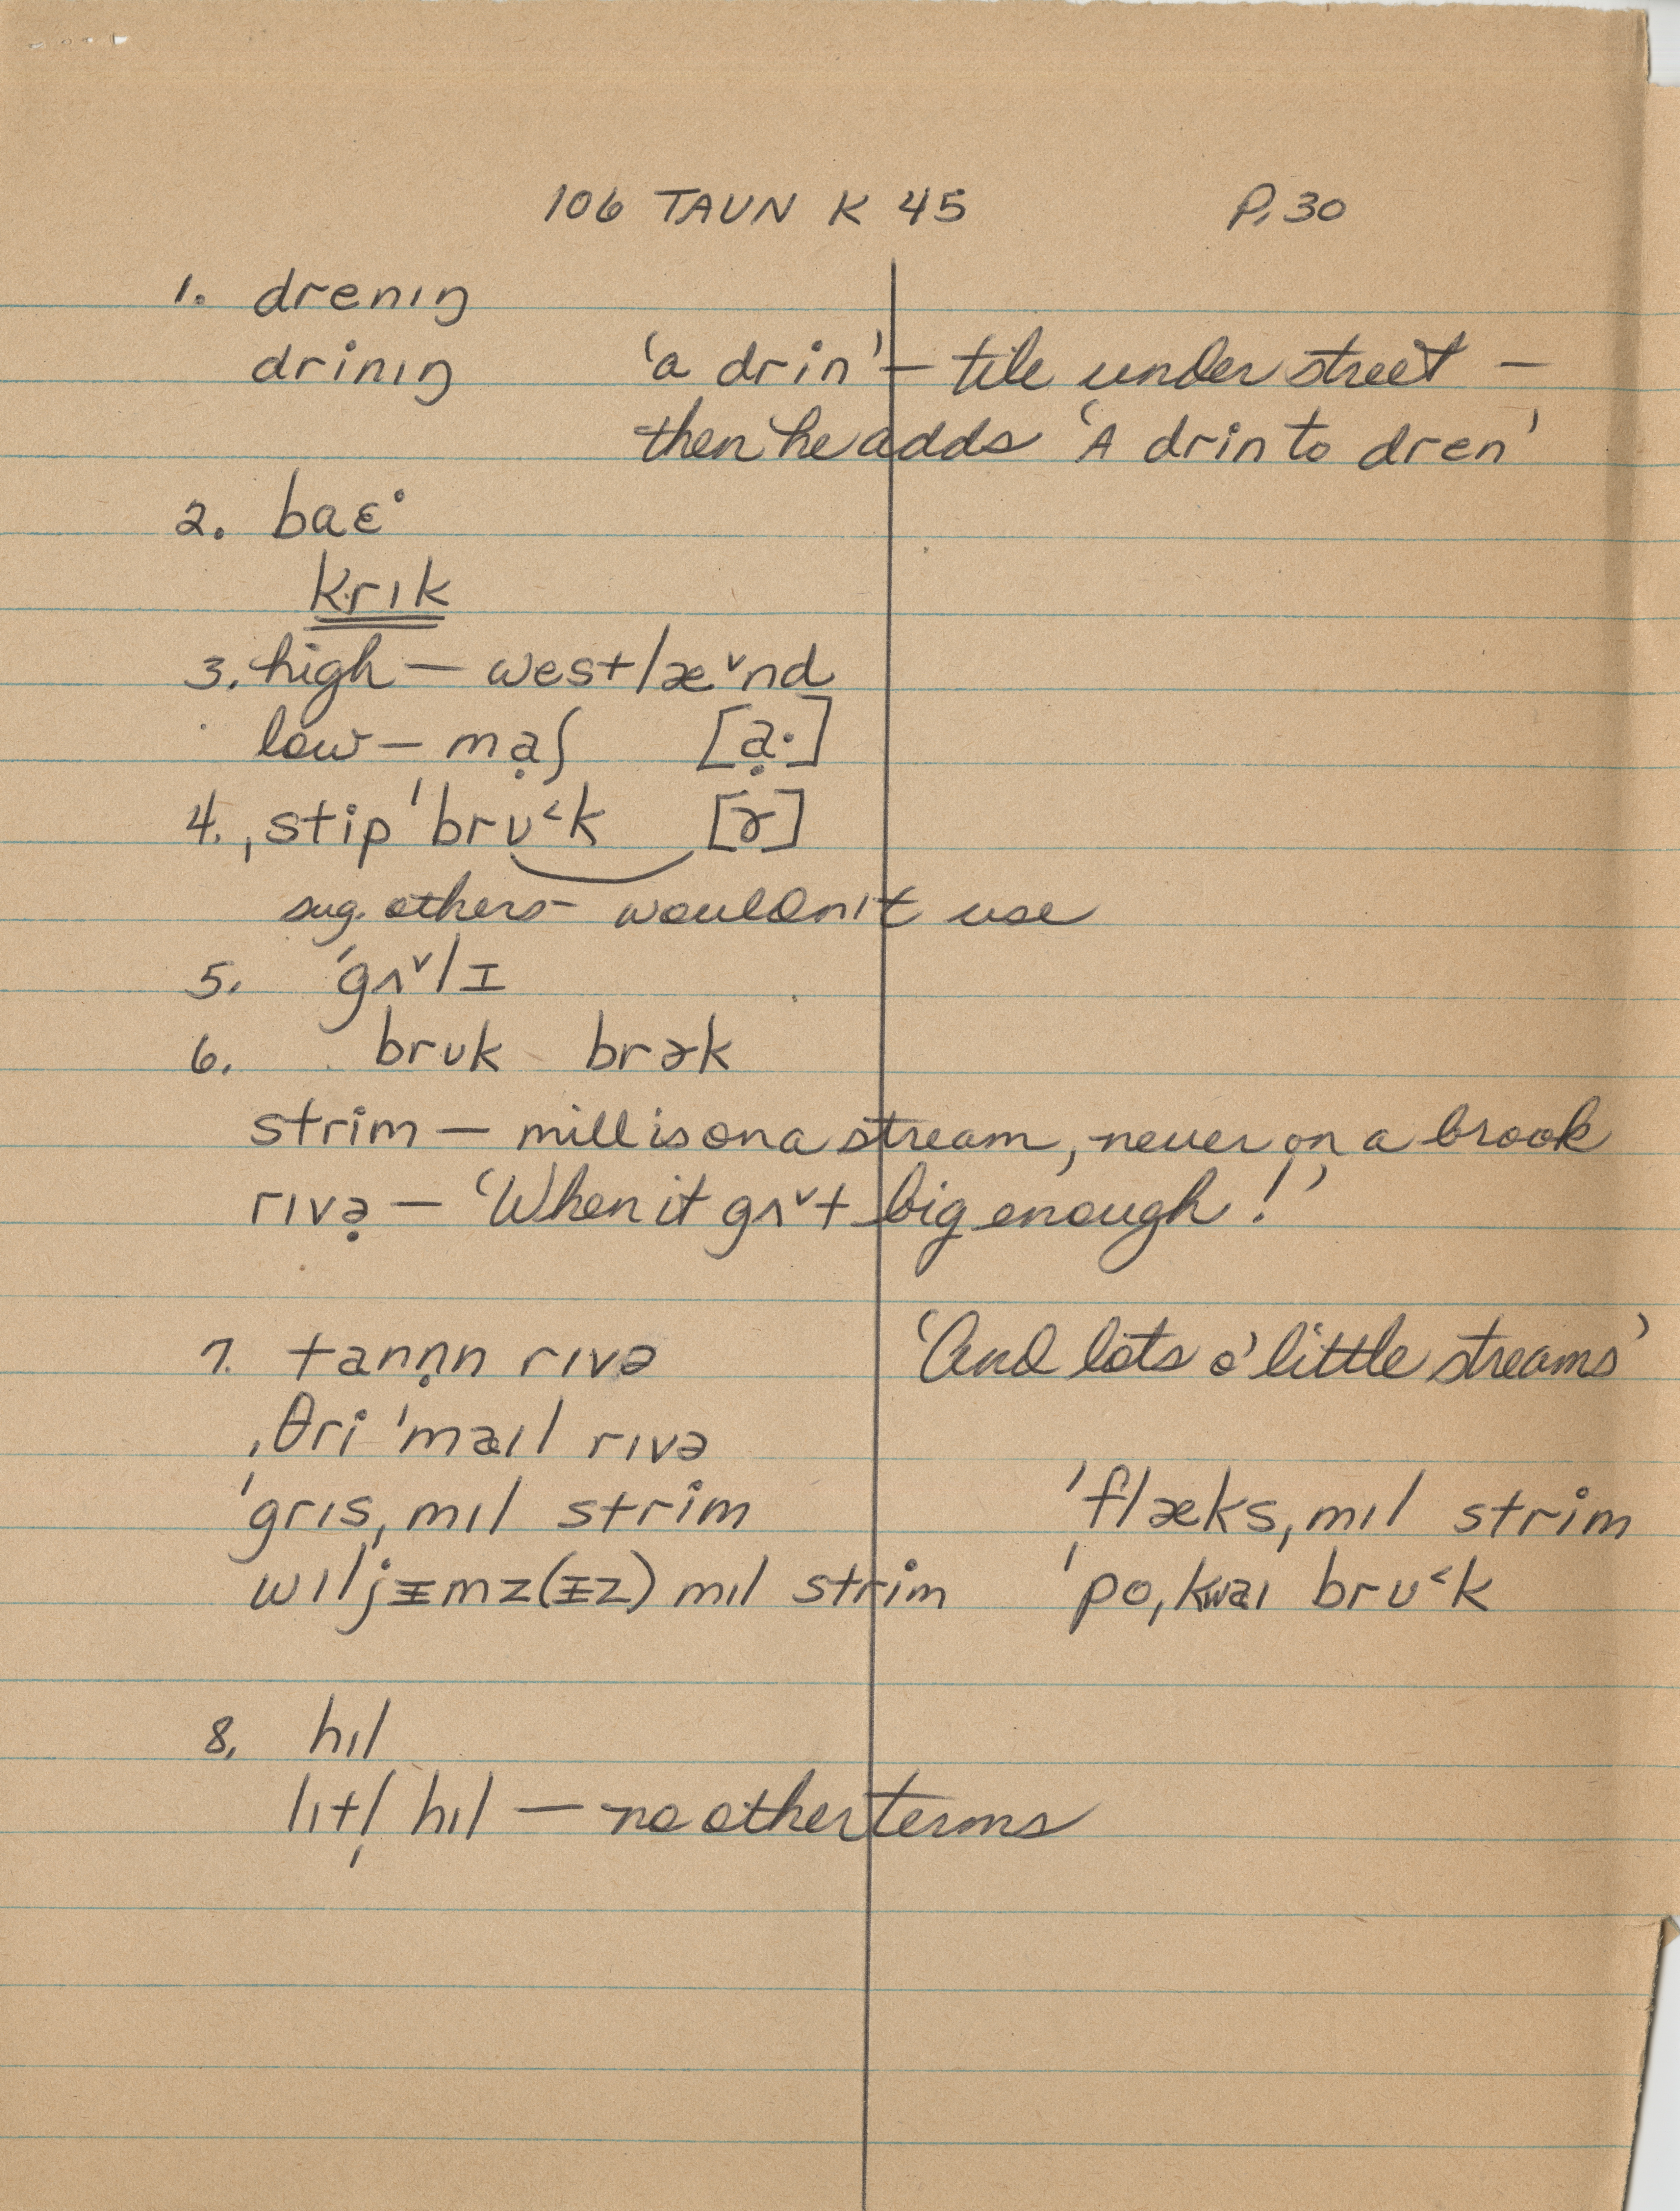 106 TAUN K 45 P. 30
1. drenıŋ
drinıŋ 'a drin' – tile under street –
then he adds 'A drin to dren'
2. baɛ˙
krık
3. high – westlæ˅nd
low – mạʃ [ạ·]
4. ˌstip ˈbrʊ˂k [ɤ]
sug. others – wouldn't use
5. ˈgʌ˅lɪ
6. brʊk brɤk
strim – mill is on a stream, never on a brook
rıvə̣ – 'When it gʌ˅t big enough!'
7. tanṇn rıvə 'And lots o' little streams'
ˌθri ˈmaıl rıvə
ˈgrısˌmıl strim ˈflæksˌmıl strim
wıljᵻmz(ᵻz) mıl strim ˈpoˌkwaı brʊ˂k
8. hıl
lıtl̩ hıl – no other terms